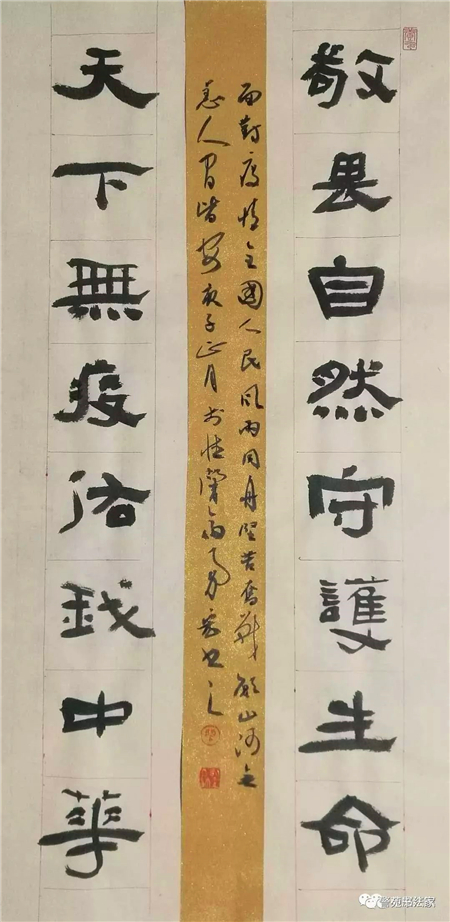 敬畏自然守護生命
面對疫情全國人民風雨同舟堅苦奮戰願山河無
恙人間皆安庚子正月於書之
天下無疫佑我中華
警苑书法家